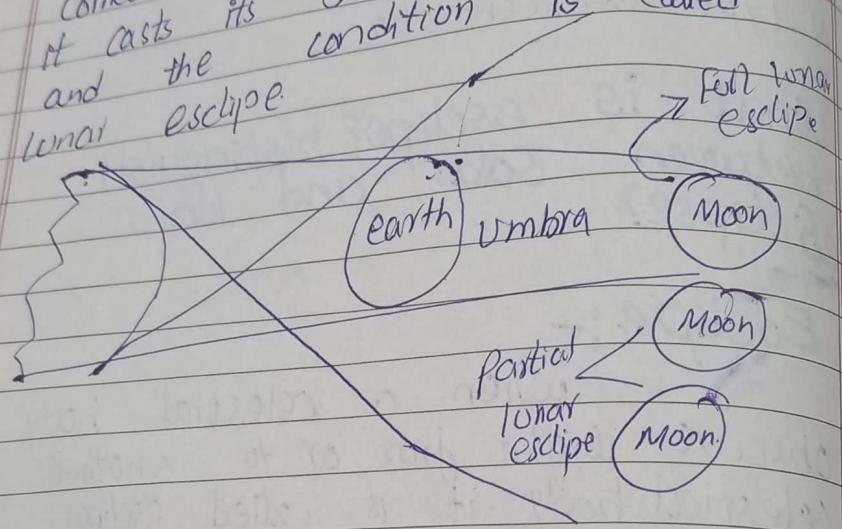 it casts its
and the condition is
lunar esclipe.
Full lunar
esclipe
earth
umbra
Moon
Moon
Partial
lunar
esclipe
Moon.